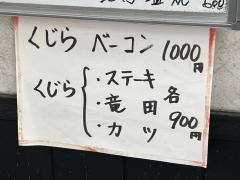 くじら ベーコン 1000円
くじら
・ステーキ
・竜田
・カツ
各900円